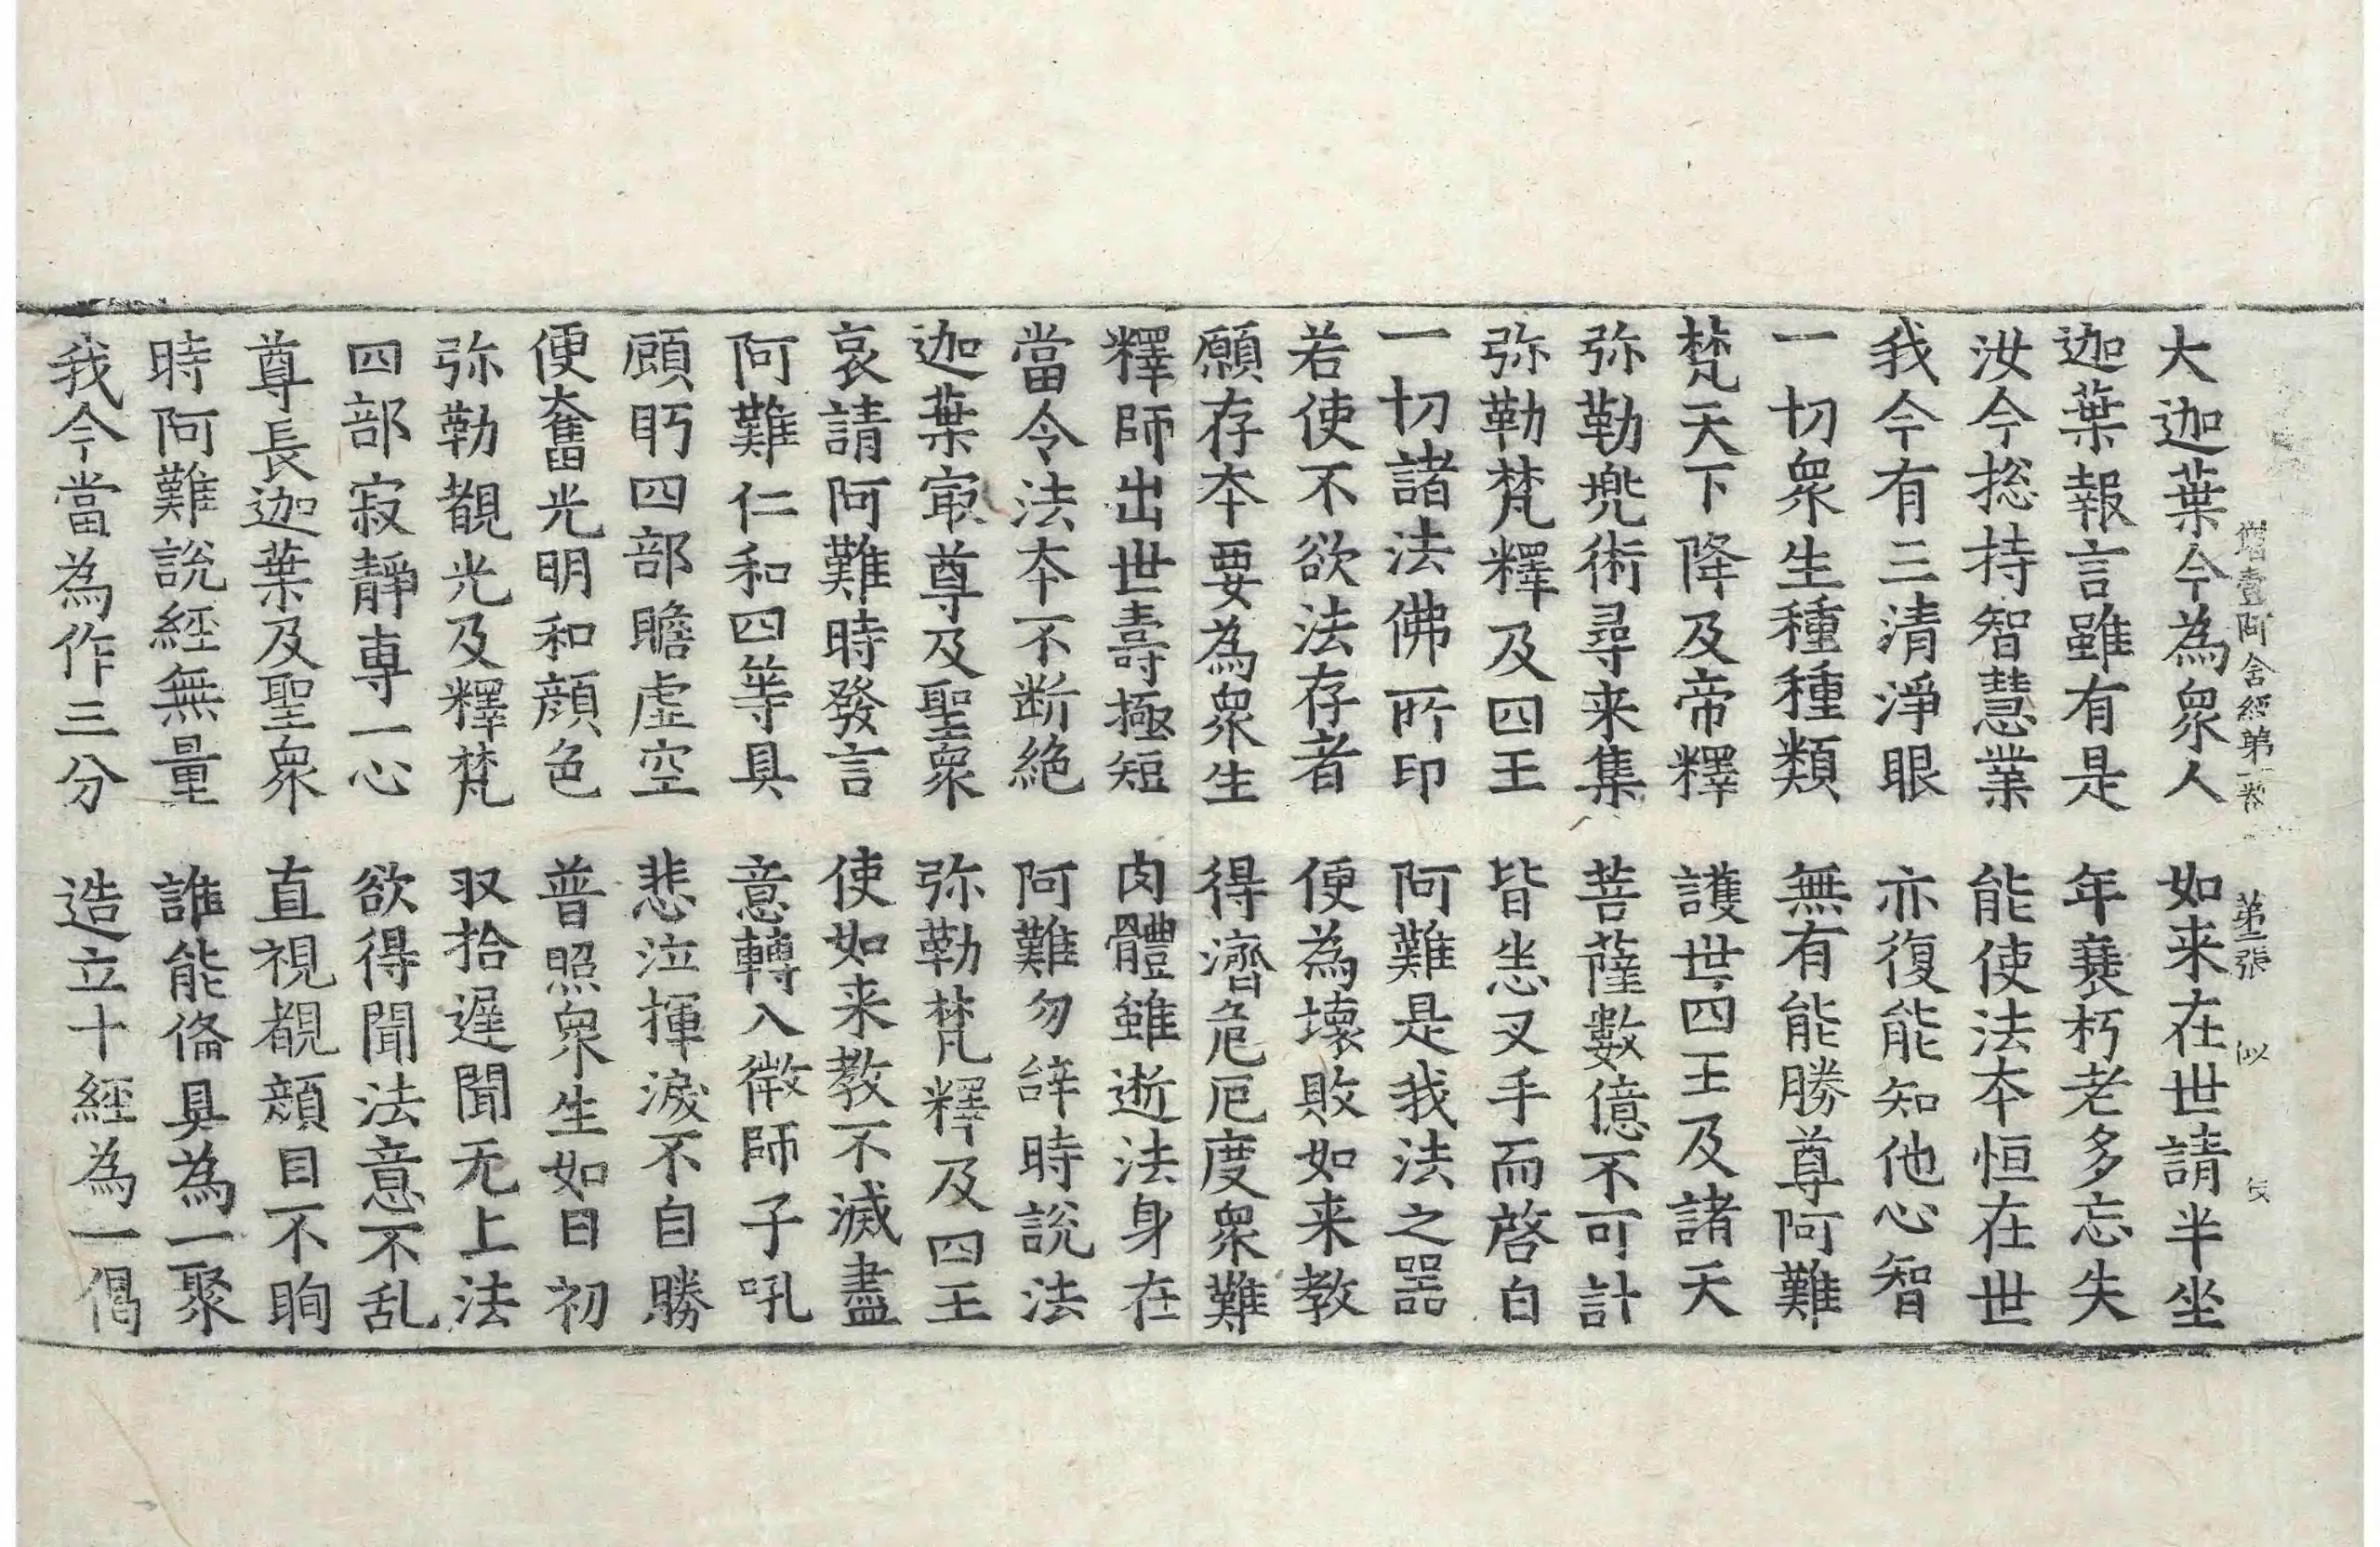 增壹阿含經第一卷 第二張 似
大迦葉今為衆人 如来在世請半坐
迦葉報言雖有是 年衰朽老多忘失
汝今揔持智慧業 能使法夲恒在世
我今有三清淨眼 亦復能知他心智
一切衆生種種類 無有能勝尊阿難
梵天下降及帝釋 護世四王及諸天
弥勒兜術尋来集 菩薩數億不可計
弥勒梵釋及四王 皆悉叉手而啓白
一切諸法佛所印 阿難是我法之器
若使不欲法存者 便為壞敗如来教
願存夲要為衆生 得濟危厄度衆難
釋師出世壽極短 肉體雖逝法身在
當令法夲不断絶 阿難勿辝時說法
迦葉㝡尊及聖衆 弥勒梵釋及四王
哀請阿難時發言 使如来教不滅盡
阿難仁和四等具 意轉入微師子吼
顧眄四部瞻虛空 悲泣揮淚不自勝
便奮光明和顔色 普照衆生如日初
弥勒覩光及釋梵 収拾遲聞无上法
四部寂靜專一心 欲得聞法意不乱
尊長迦葉及聖衆 直視覩顔目不眴
時阿難說經無量 誰能俻具為一聚
我今當為作三分 造立十經為一偈